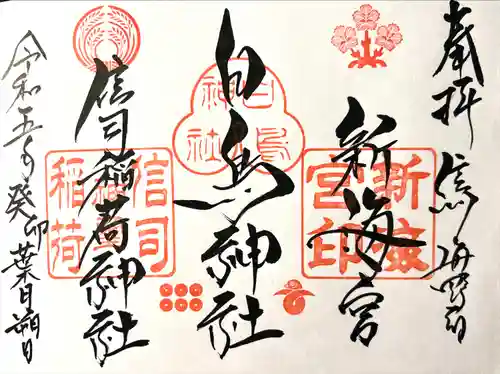 奉拝
信 海野宿
新海宮
新海宮印
白鳥神社
白鳥神社
信司稲荷神社
信司稲荷
令和五年癸卯葉月朔日